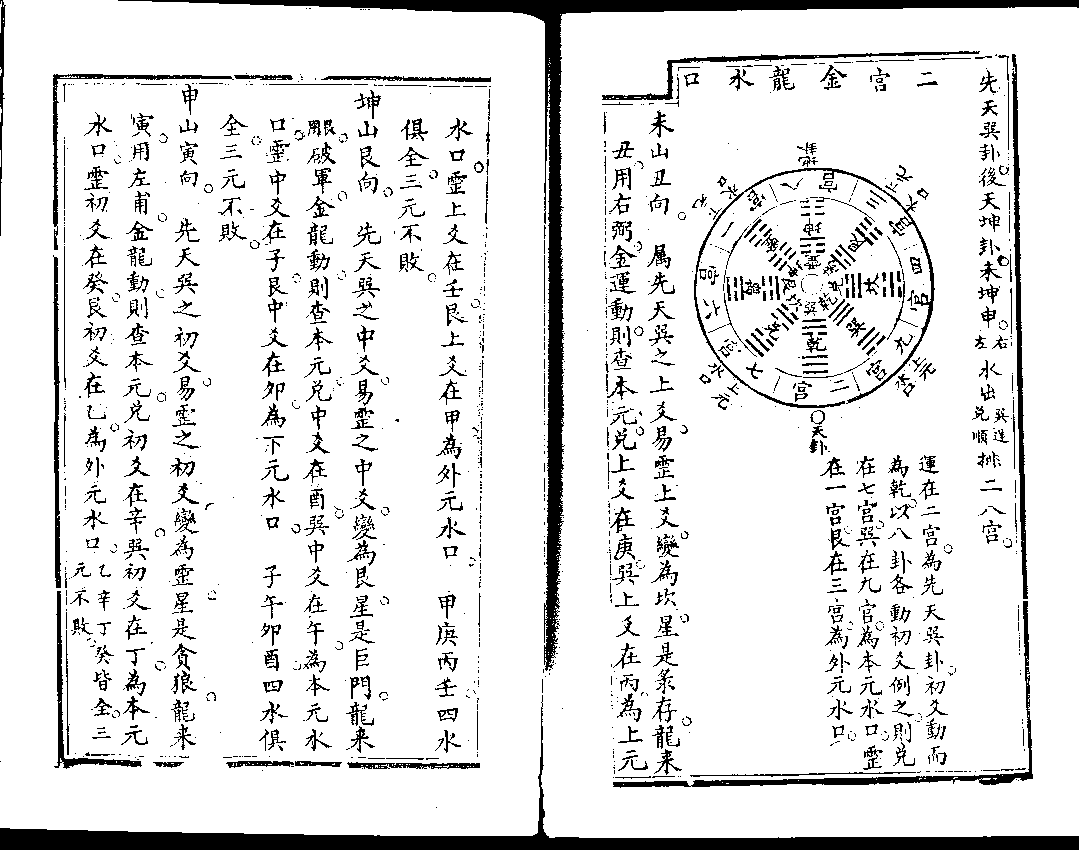 先天巽卦後天坤卦未坤申左右水出兌順巽逆挑二八宮
二宮金龍水口
運在二宮為先天巽卦初爻動而
為乾以八卦各動初爻例之則兌
在七宮巽在九宮為本元水口靈
在一宮艮在三宮為外元水口
天卦
上元
水口
上元
二宮
九宮
四宮
三宮
八宮
一宮
六宮
七宮
乾
未山丑向 属先天巽之上爻易靈上爻變為坎星是彔存龍来
丑用右弼金運動則查本元兌上爻在庚巽上爻在丙為上元
水口靈上爻在壬艮上爻在甲為外元水口 甲庚丙壬四水
俱全三元不敗
坤山艮向 先天巽之中爻易靈之中爻變為艮星是巨門龍来
艮用破軍金龍動則查本元兌中爻在酉巽中爻在午為本元水
口靈中爻在子艮中爻在卯為下元水口 子午卯酉四水俱
全三元不敗
申山寅向 先天巽之初爻易靈之初爻變為靈星是貪狼龍来
寅用左甫金龍動則查本元兌初爻在辛巽初爻在丁為本元
水口靈初爻在癸艮初爻在乙為外元水口 乙辛丁癸皆全三元不敗